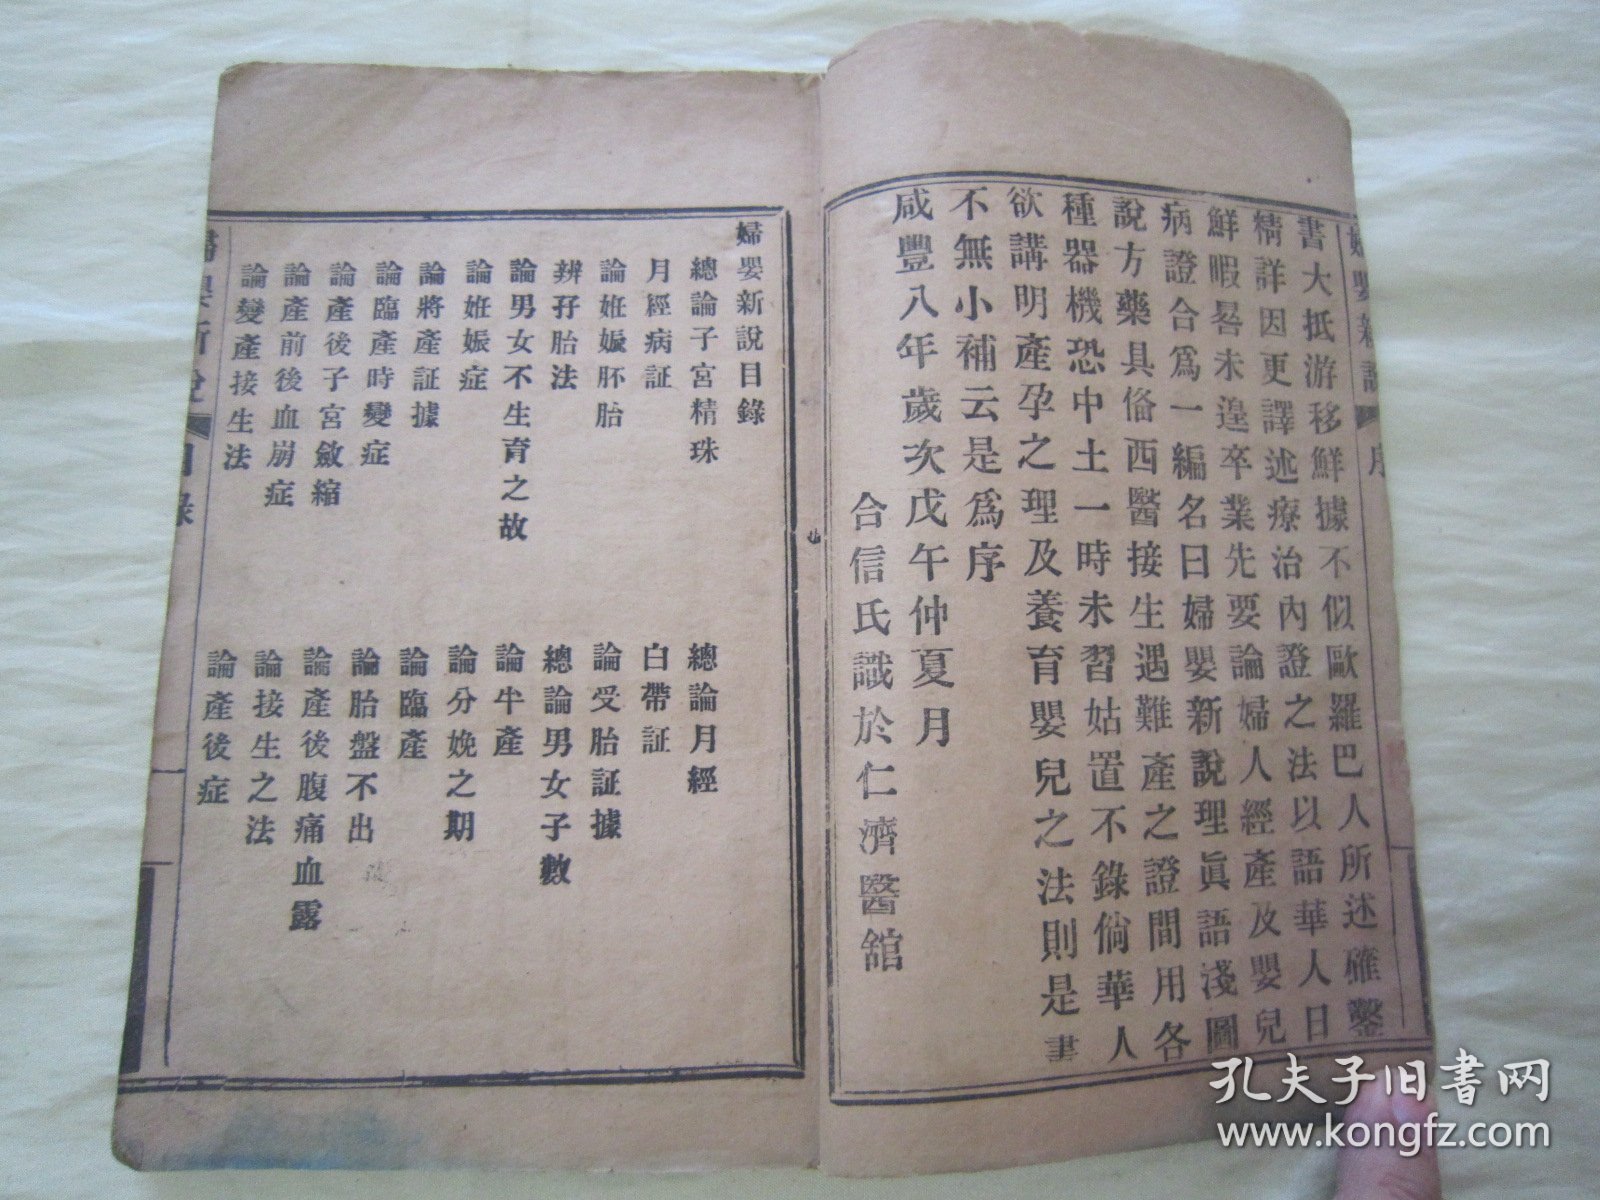 書大抵游移鮮據不似歐羅巴人所述確鑿
精詳因更譯述療治內證之法以語華人日
鮮暇晷未遑卒業先要論婦人經產及嬰兒
病證合爲一編名曰婦嬰新說理眞語淺圖
說方藥具俻西醫接生遇難產之證間用各
種器機恐中土一時未習姑置不錄倘華人
欲講明產孕之理及養育嬰兒之法則是書
不無小補云是爲序
咸豐八年歲次戊午仲夏月
合信氏識於仁濟醫舘
婦嬰新說 序
婦嬰新說目錄
總論子宮精珠 總論月經
月經病証 白帶証
論姙娠胚胎 論受胎証據
辨孖胎法 總論男女子數
論男女不生育之故 論半產
論姙娠症 論分娩之期
論將產証據 論臨產
論臨產時變症 論胎盤不出
論產後子宮斂縮 論產後腹痛血露
論產前後血崩症 論接生之法
論變產接生法 論產後症
婦嬰新說 目錄
孔夫子旧书网
www.kongfz.com